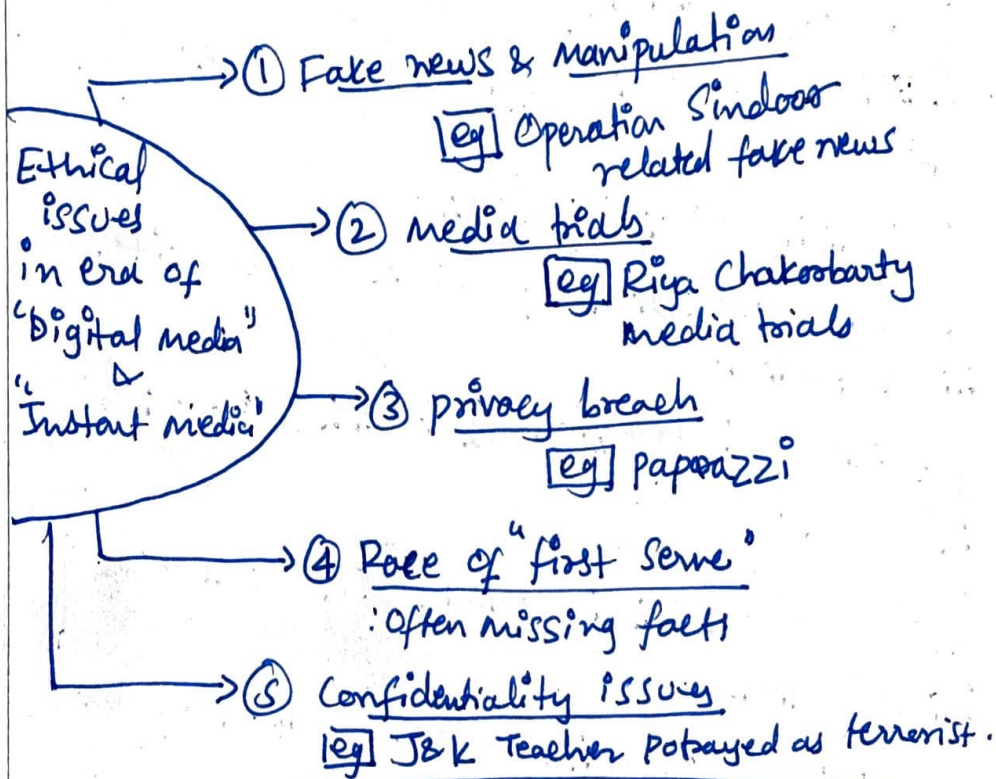 Ethical
issues
in era of
"Digital media"
&
"Instant media"
① Fake news & Manipulation
eg Operation Sindoor
related fake news
② Media trials
eg Riya Chakrobarty
media trials
③ privacy breach
eg paparazzi
④ Race of "first serve"
: Often missing facts
⑤ Confidentiality issues
eg J&K Teacher potrayed as terrorist.